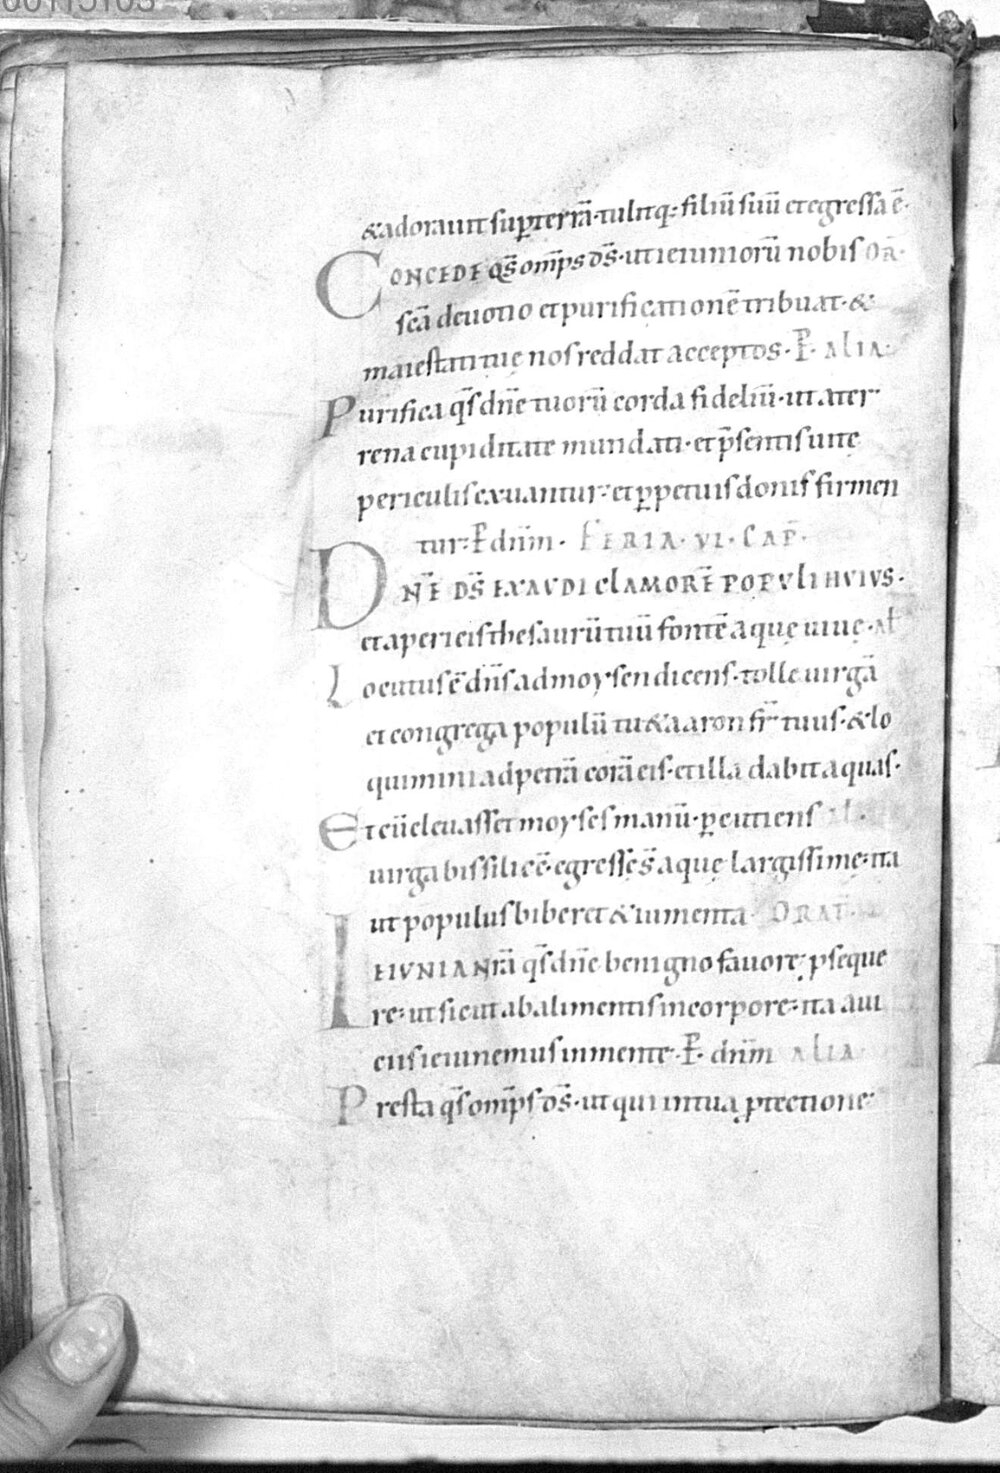 &adorauit sup terrā· tulitq; filiū suū et egressa ē·
CONCEDE q̄s om̄ps d̄s· ut ieiuniorū nobis OR̄·
sc̄a deuotio et purificationē tribuat· &
maiestati tuę nos reddat acceptos· P· ALIA·
Purifica q̄s dn̄e tuorū corda fideliū· ut a ter
rena cupiditate mundati· et p̄sentis uitę
periculis exuantur· et ꝑpetuis donis firmen
tur· P dn̄m· FERIA· VI· CAP̄·
DN̄E D̄S EXAUDI CLAMORĒ POPULI HUIUS·
et aperi eis thesaurū tuū fontē aquę uiuę· al̄
Locutus ē dn̄s ad moysen dicens· tolle uirgā
et congrega populū tu & aaron fr̄ tuus· & lo
quimini ad petrā corā eis· et illa dabit aquas·
Et cū eleuasset moyses manū· ꝑcutiens al̄·
uirga bis silicē· egressę s̄ aquę largissimę· ita
ut populus biberet & iumenta· ORAT̄·
IEIUNIA nr̄a q̄s dn̄e benigno fauore ꝓseque
re· ut sicut ab alimentis in corpore· ita a ui
ciis ieiunemus in mente· P· dn̄m ALIA
Presta q̄s om̄ps d̄s· ut qui in tua ꝓtectione·